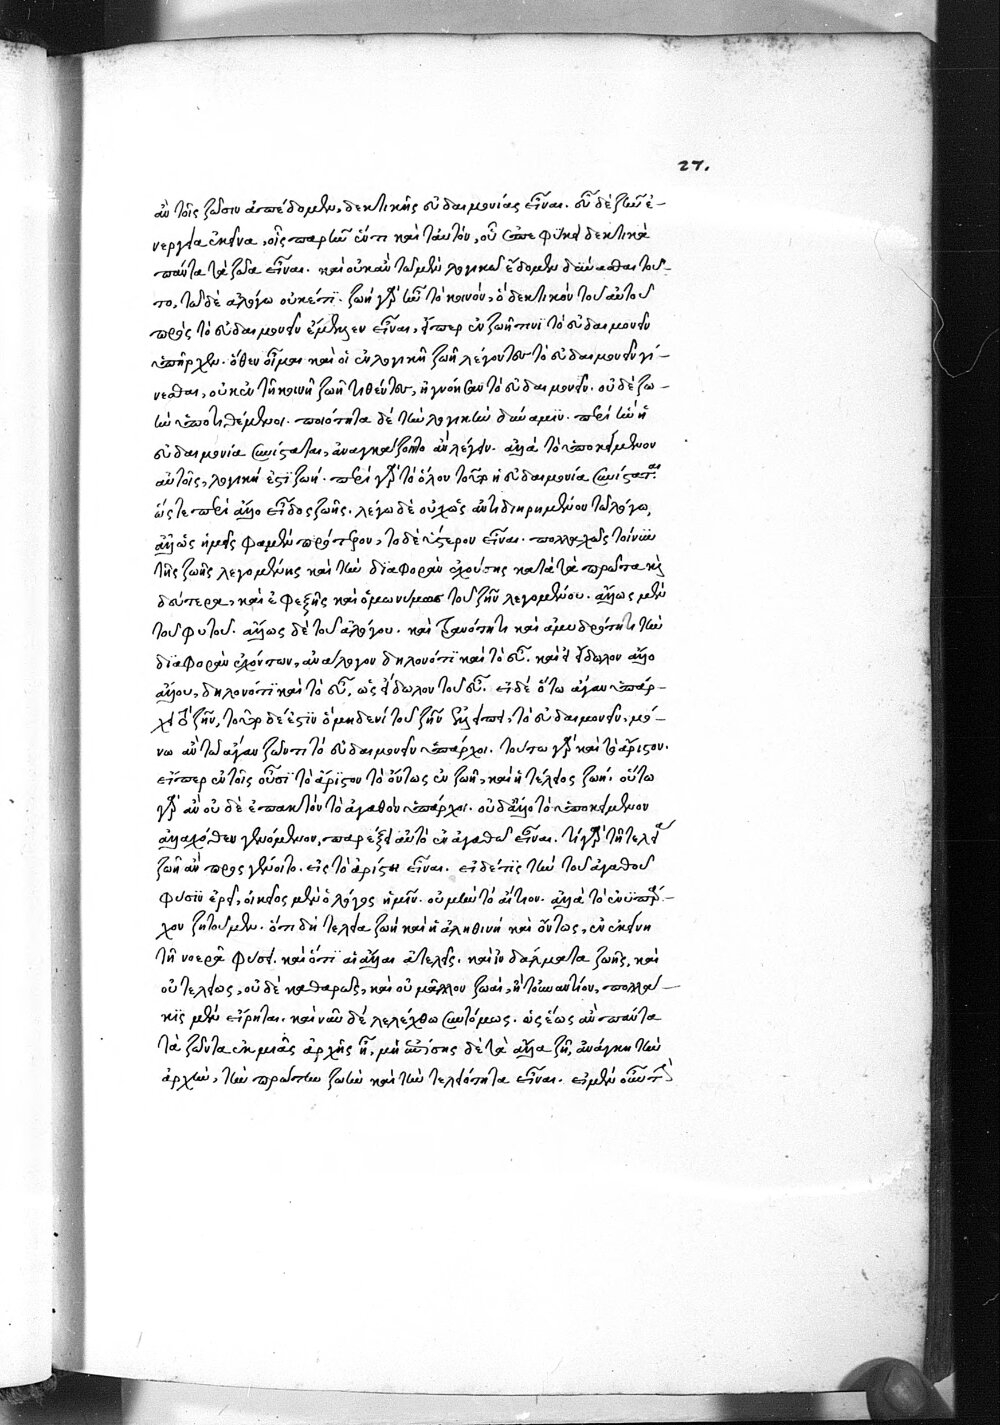 ἂν τοῖς ζῶσιν ἀπέδομεν, δεκτικῆς εὐδαιμονίας εἶναι. εὖ δὲ ζῆν ἐ-
νεργεία ἐκεῖνα, οἷς παρῆν ἕν τι καὶ ταὐτόν, οὗ ἐπεφύκει δεκτικὰ
πάντα τὰ ζῶα εἶναι. καὶ οὐκ ἂν τῶ μὲν λογικῶ ἔδομεν δύνασθαι τοῦ-
το, τῶ δὲ ἀλόγω οὐκέτι. ζωὴ γὰρ ἦν τὸ κοινόν, ὃ δεκτικὸν τοῦ αὐτοῦ
πρὸς τὸ εὐδαιμονεῖν ἔμελλεν εἶναι, εἴπερ ἐν ζωῇ τινὶ τὸ εὐδαιμονεῖν
ὑπῆρχεν. ὅθεν οἶμαι καὶ οἱ ἐν λογικῇ ζωῇ λέγοντες τὸ εὐδαιμονεῖν γί-
νεσθαι, οὐκ ἐν τῇ κοινῇ ζωῇ τιθέντες, ἠγνόησαν τὸ εὐδαιμονεῖν. οὐδὲ ζω-
ὴν ὑποτιθέμενοι. ποιότητα δὲ τὴν λογικὴν δύναμιν. περὶ ἣν ἡ
εὐδαιμονία συνίσταται, ἀναγκάζοιντο ἂν λέγειν. ἀλλὰ τὸ ὑποκείμενον
αὐτοῖς, λογική ἐστι ζωή. περὶ γὰρ τὸ ὅλον τοῦτο ἡ εὐδαιμονία συνίσταται.
ὥστε περὶ ἄλλο εἶδος ζωῆς. λέγω δὲ οὐχ ὡς ἀντιδιηρημένον τῶ λόγω,
ἀλλ' ὡς ἡμεῖς φαμὲν πρότερον, τὸ δὲ ὕστερον εἶναι. πολλαχῶς τοίνυν
τῆς ζωῆς λεγομένης καὶ τὴν διαφορὰν ἐχούσης κατὰ τὰ πρῶτα καὶ
δεύτερα, καὶ ἐφεξῆς καὶ ὁμωνύμως τοῦ ζῆν λεγομένου. ἄλλως μὲν
τοῦ φυτοῦ. ἄλλως δὲ τοῦ ἀλόγου. καὶ τρανότητι καὶ ἀμυδρότητι τὴν
διαφορὰν ἐχόντων, ἀνάλογον δηλονότι καὶ τὸ εὖ. καὶ εἰ εἴδωλον ἄλλο
ἄλλου, δηλονότι καὶ τὸ εὖ, ὡς εἴδωλον τοῦ εὖ. εἰ δὲ ὅτω ἄγαν ὑπάρ-
χει τὸ ζῆν, τοῦτο δέ ἐστιν ὃ μηδενὶ τοῦ ζῆν ἐλλείπει, τὸ εὐδαιμονεῖν, μό-
νω ἂν τῶ ἄγαν ζῶντι τὸ εὐδαιμονεῖν ὑπάρχοι. τούτω γὰρ καὶ τὸ ἄριστον.
εἴπερ ἐν τοῖς οὖσι τὸ ἄριστον τὸ ὄντως ἐν ζωῇ, καὶ ἡ τέλειος ζωή. οὕτω
γὰρ ἂν οὐδὲ ἐπακτὸν τὸ ἀγαθὸν ὑπάρχοι. οὐδ' ἄλλο τὸ ὑποκείμενον
ἀλλαχόθεν γενόμενον, παρέξει αὐτὸ ἐν ἀγαθῶ εἶναι. τί γὰρ τῇ τελεία
ζωῇ ἂν προσγένοιτο. εἰς τὸ ἀρίστη εἶναι. εἰ δέ τις τὴν τοῦ ἀγαθοῦ
φύσιν ἐρεῖ, οἰκεῖος μὲν ὁ λόγος ἡμῖν. οὐ μὴν τὸ αἴτιον. ἀλλὰ τὸ ἐνυπάρ-
χον ζητοῦμεν. ὅτι δὴ τελεία ζωὴ καὶ ἡ ἀληθινὴ καὶ ὄντως, ἐν ἐκείνη
τῇ νοερᾶ φύσει. καὶ ὅτι αἱ ἄλλαι ἀτελεῖς. καὶ ἰνδάλματα ζωῆς, καὶ
οὐ τελείως, οὐδὲ καθαρῶς, καὶ οὐ μᾶλλον ζωαί, ἢ τοὐναντίον, πολλά-
κις μὲν εἴρηται. καὶ νῦν δὲ λελέχθω συντόμως. ὡς ἕως ἂν πάντα
τὰ ζῶντα ἐκ μιᾶς ἀρχῆς ᾖ, μὴ ἐπίσης δὲ τὰ ἄλλα ζῇ, ἀνάγκη τὴν
ἀρχὴν, τὴν πρώτην ζωὴν καὶ τὴν τελειότητα εἶναι. εἰ μὲν οὖν τὸ
27.